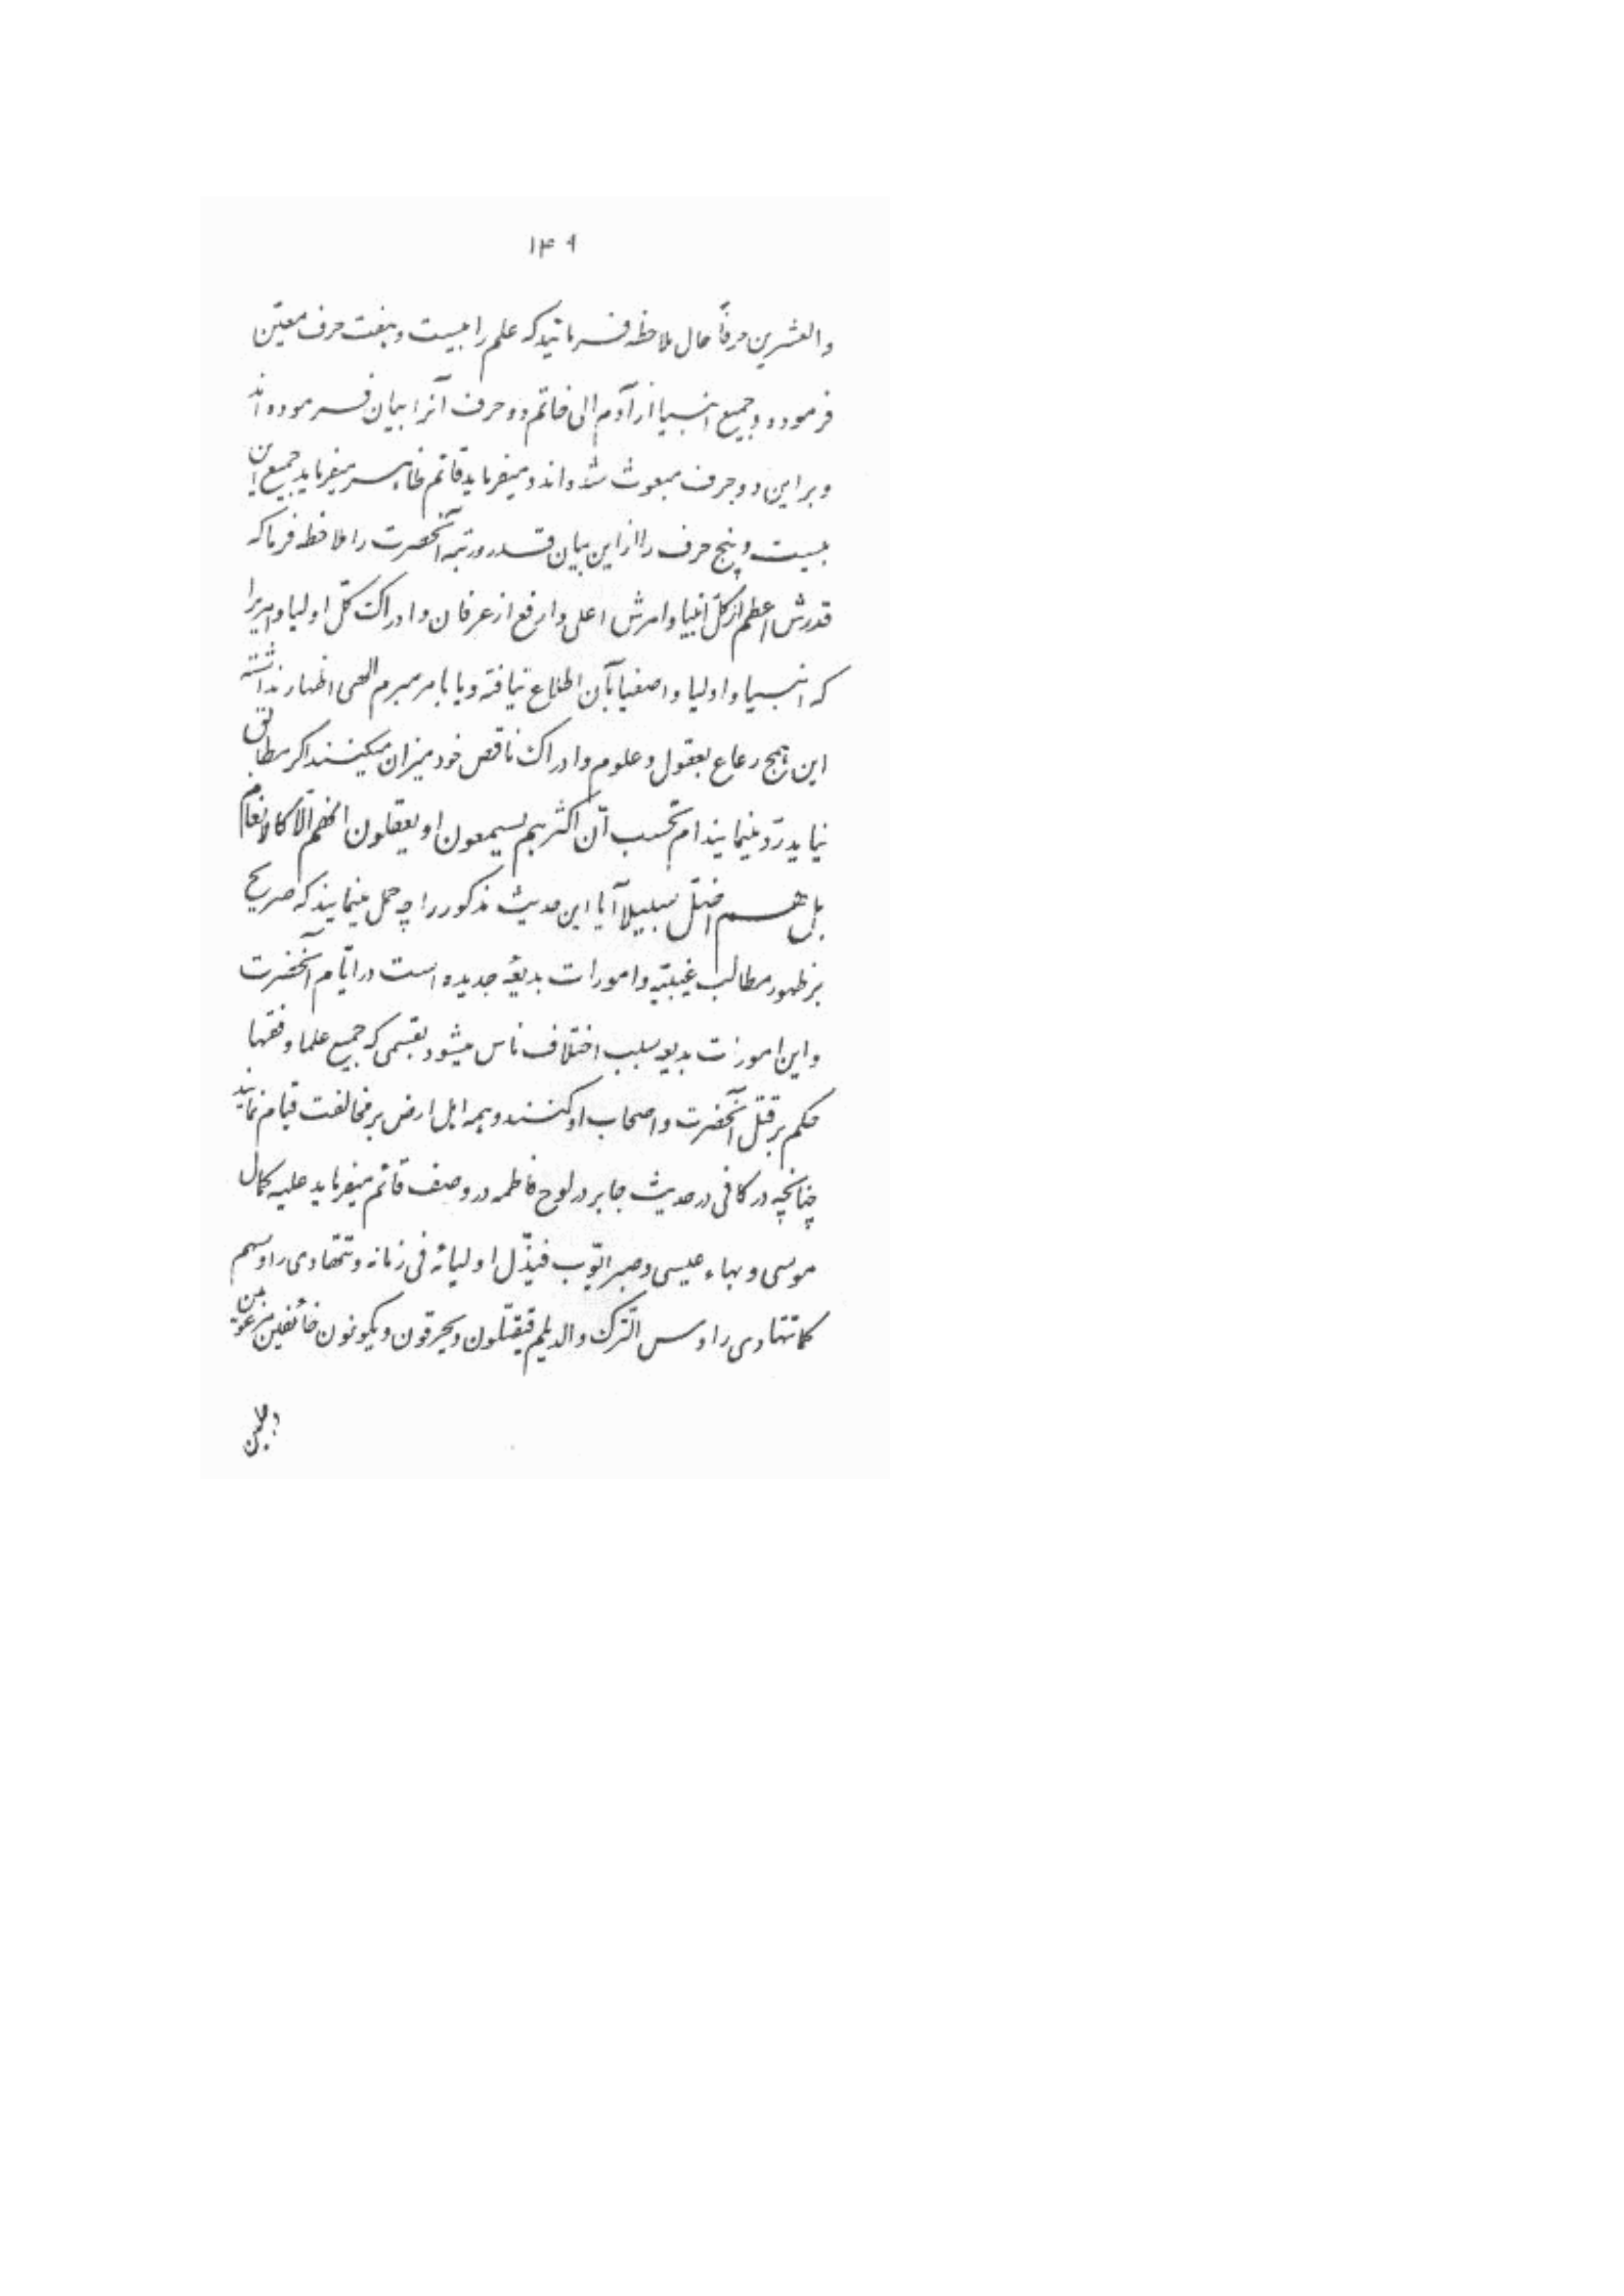 ۱۴۹
والعشرین حرفاً حال ملاحظه فرمائید که علم را بیست و هفت حرف معیّن
فرموده و جمیع انبیا از آدم الی خاتم دو حرف آنرا بیان فرموده اند
و بر این دو حرف مبعوث شده اند و میفرماید قائم ظاهر میفرماید جمیع این
بیست و پنج حرف را از این بیان قدر و رتبه آنحضرت را ملاحظه فرما که
قدرش اعظم از کلّ انبیا و امرش اعلی و ارفع از عرفان و ادراک کلّ اولیا و امریرا
که انبیا و اولیا و اصفیا بآن اطّلاع نیافته و یا بامر مبرم الهی اظهار نداشته
این همج رعاع بعقول و علوم و ادراک ناقص خود میزان میکنند اگر مطابق
نیاید ردّ مینمایند ام تحسب انّ اکثرهم یسمعون او یعقلون ان هم الّا کالانعام
بل هم اضلّ سبیلاً آیا این حدیث مذکور را چه حمل مینمایند که صریح
بر ظهور مطالب غیبیّه و امورات بدیعهٔ جدیده است در ایّام آنحضرت
و این امورات بدیعه سبب اختلاف ناس میشود بقسمی که جمیع علما و فقها
حکم بر قتل آنحضرت و اصحاب او کنند و همه اهل ارض بر مخالفت قیام نمایند
چنانچه در کافی در حدیث جابر در لوح فاطمه در وصف قائم میفرماید علیه کمال
موسی و بهاء عیسی و صبر ایّوب فیذلّ اولیائه فی زمانه و تتهادی رؤسهم
کما تتهادی رؤس التّرک و الدیلم فیقتلون و یحرقون و یکونون خائفین مرعوبین
وجلین